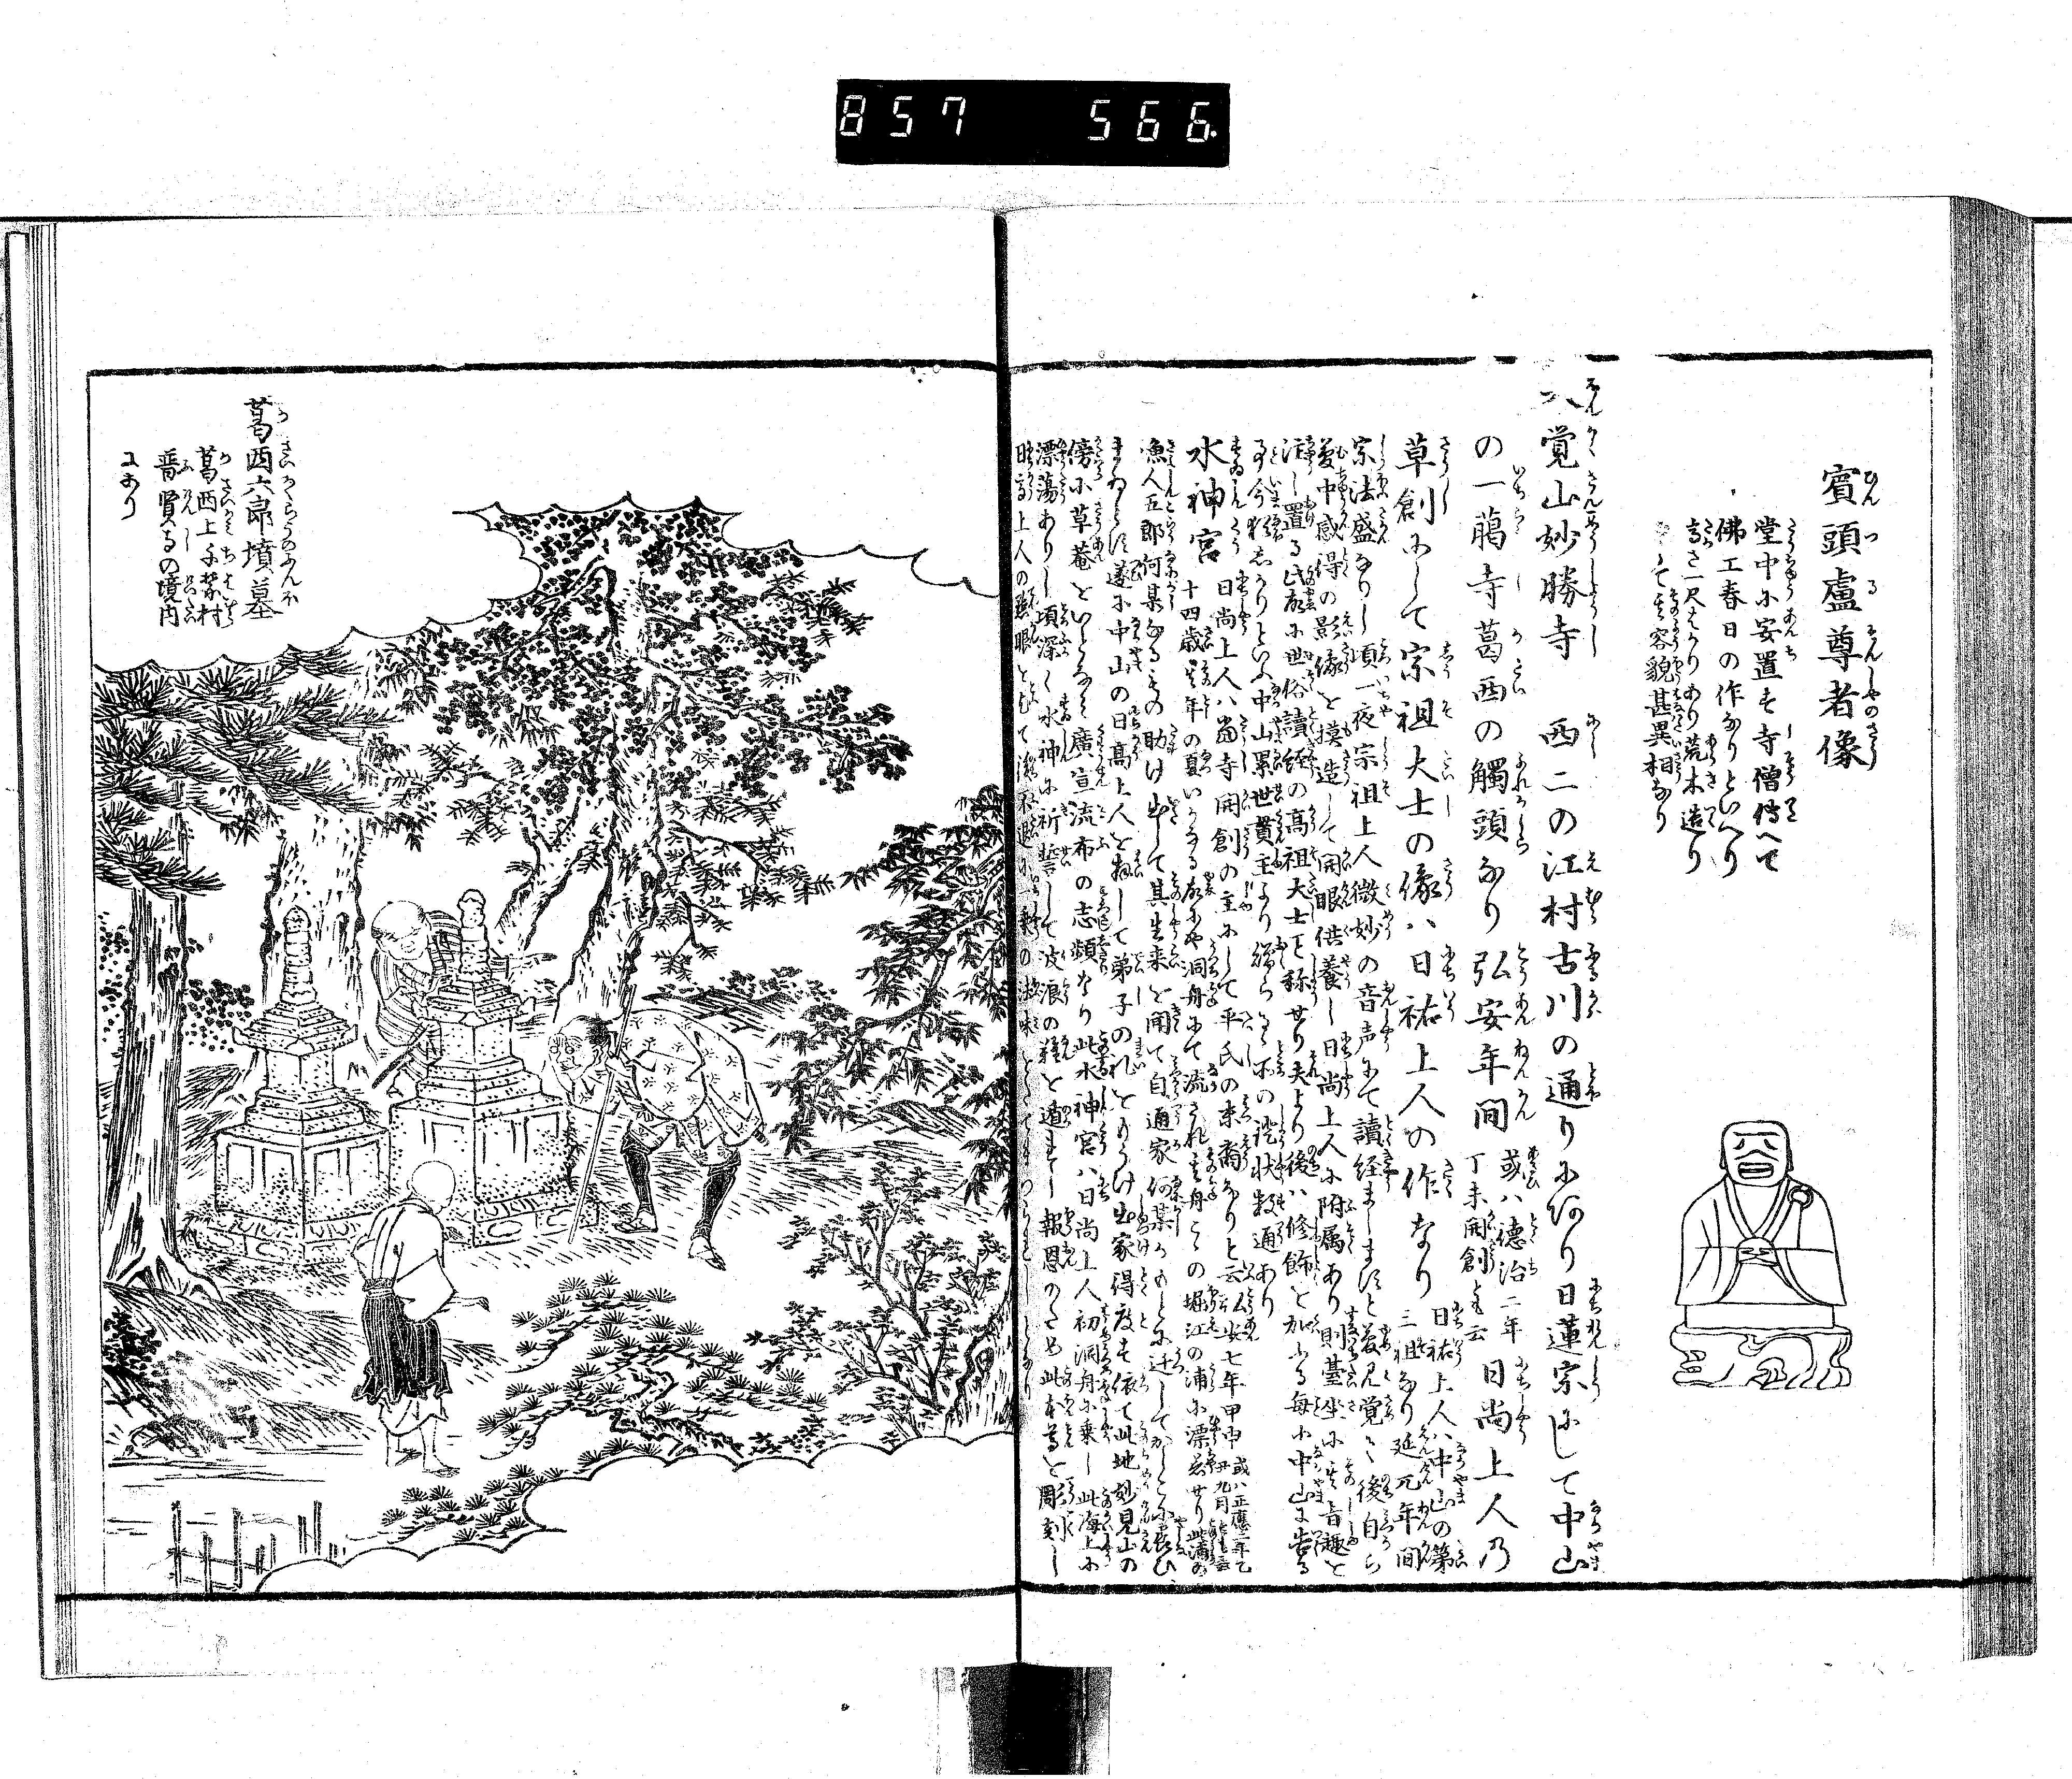 857 566
賓頭盧尊者像
堂中に安置す寺僧傳へて
佛工春日の作なりといへり
高さ一尺はかりあり荒木造り
にて其容貌甚異相なり
覚山妙勝寺 西二の江村古川の通りにあり日蓮宗にして中山
の一﨟寺葛西の觸頭なり弘安年間
或ハ徳治二年
丁未開創とも云
日尚上人乃
草創にして宗祖大士の像ハ日祐上人の作なり
日祐上人ハ中山の第
三祖なり延元年間
宗法盛なりし頃一夜宗祖上人微妙の音声にて讀経ましますと夢見覚て後自ら
夢中感得の影像を摸造して開眼供養し日尚上人に附属あり則臺坐に其旨趣を
注し置る此故に世俗讀経の高祖大士と称せり夫より後ハ修飾を加ふる毎に中山に告る
事今猶しかりといふ中山累世貫主より贈らるゝ所の證状数通あり
水神宮 日尚上人ハ當寺開創の主にして平氏の末裔なりと云弘安七年甲申
十四歳其年の夏いかなる故にや洞舟にて流され其舟こゝの堀江の浦に漂着せり此浦の
漁人五郎何某なるもの助け出して其生来を聞て自通家何某かもとに迁してかしこに養ひ
まゐらす遂に中山の日高上人を拝して弟子の礼をまうけ出家得度す依て此地妙見山の
傍に草菴をいとなみて廣宣流布の志頻なり此水神宮ハ日尚上人初洞舟に乗し此海上に
漂蕩ありし頃深く水神に祈誓して波浪の難を遁まし報恩のため此本尊を彫刻し
日高上人の點眼をもて
葛西六郎墳墓
葛西上千葉村
普賢寺の境内
にあり